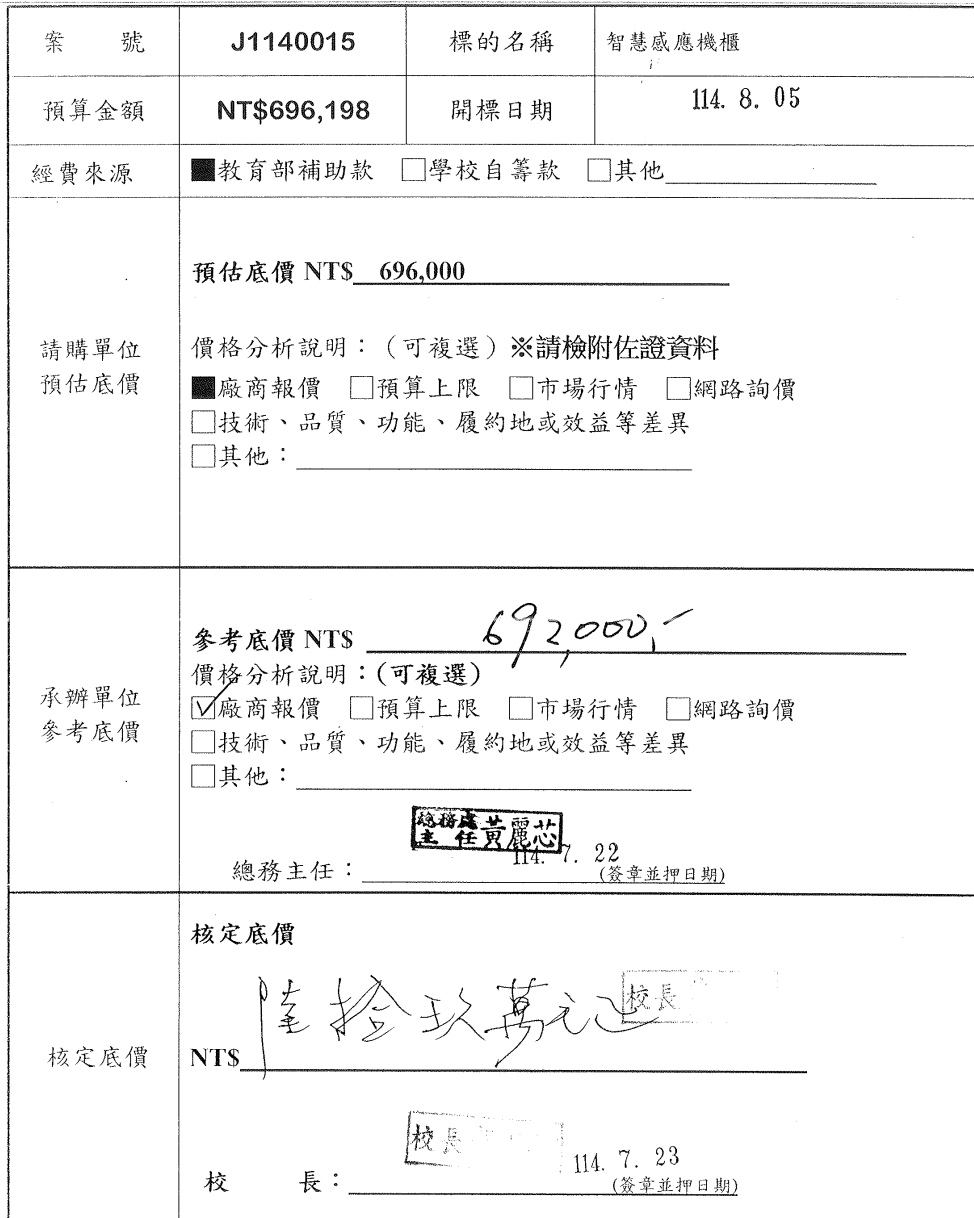 案 號 J1140015 標的名稱 智慧感應機櫃
預算金額 NT$696,198 開標日期 114. 8. 05
經費來源 ■教育部補助款 □學校自籌款 □其他
請購單位
預估底價
預估底價 NT$ 696,000
價格分析說明：（可複選）※請檢附佐證資料
■廠商報價 □預算上限 □市場行情 □網路詢價
□技術、品質、功能、履約地或效益等差異
□其他：
承辦單位
參考底價
參考底價 NT$ 692,000,-
價格分析說明：(可複選)
☑廠商報價 □預算上限 □市場行情 □網路詢價
□技術、品質、功能、履約地或效益等差異
□其他：
總務處
主任 黃麗芯
114. 7. 22
總務主任： (簽章並押日期)
核定底價
核定底價
NT$ 陸拾玖萬元正
校長
校長
114. 7. 23
校 長： (簽章並押日期)